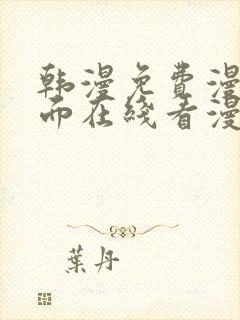 韩漫免费漫
而在线看漫
葉丹